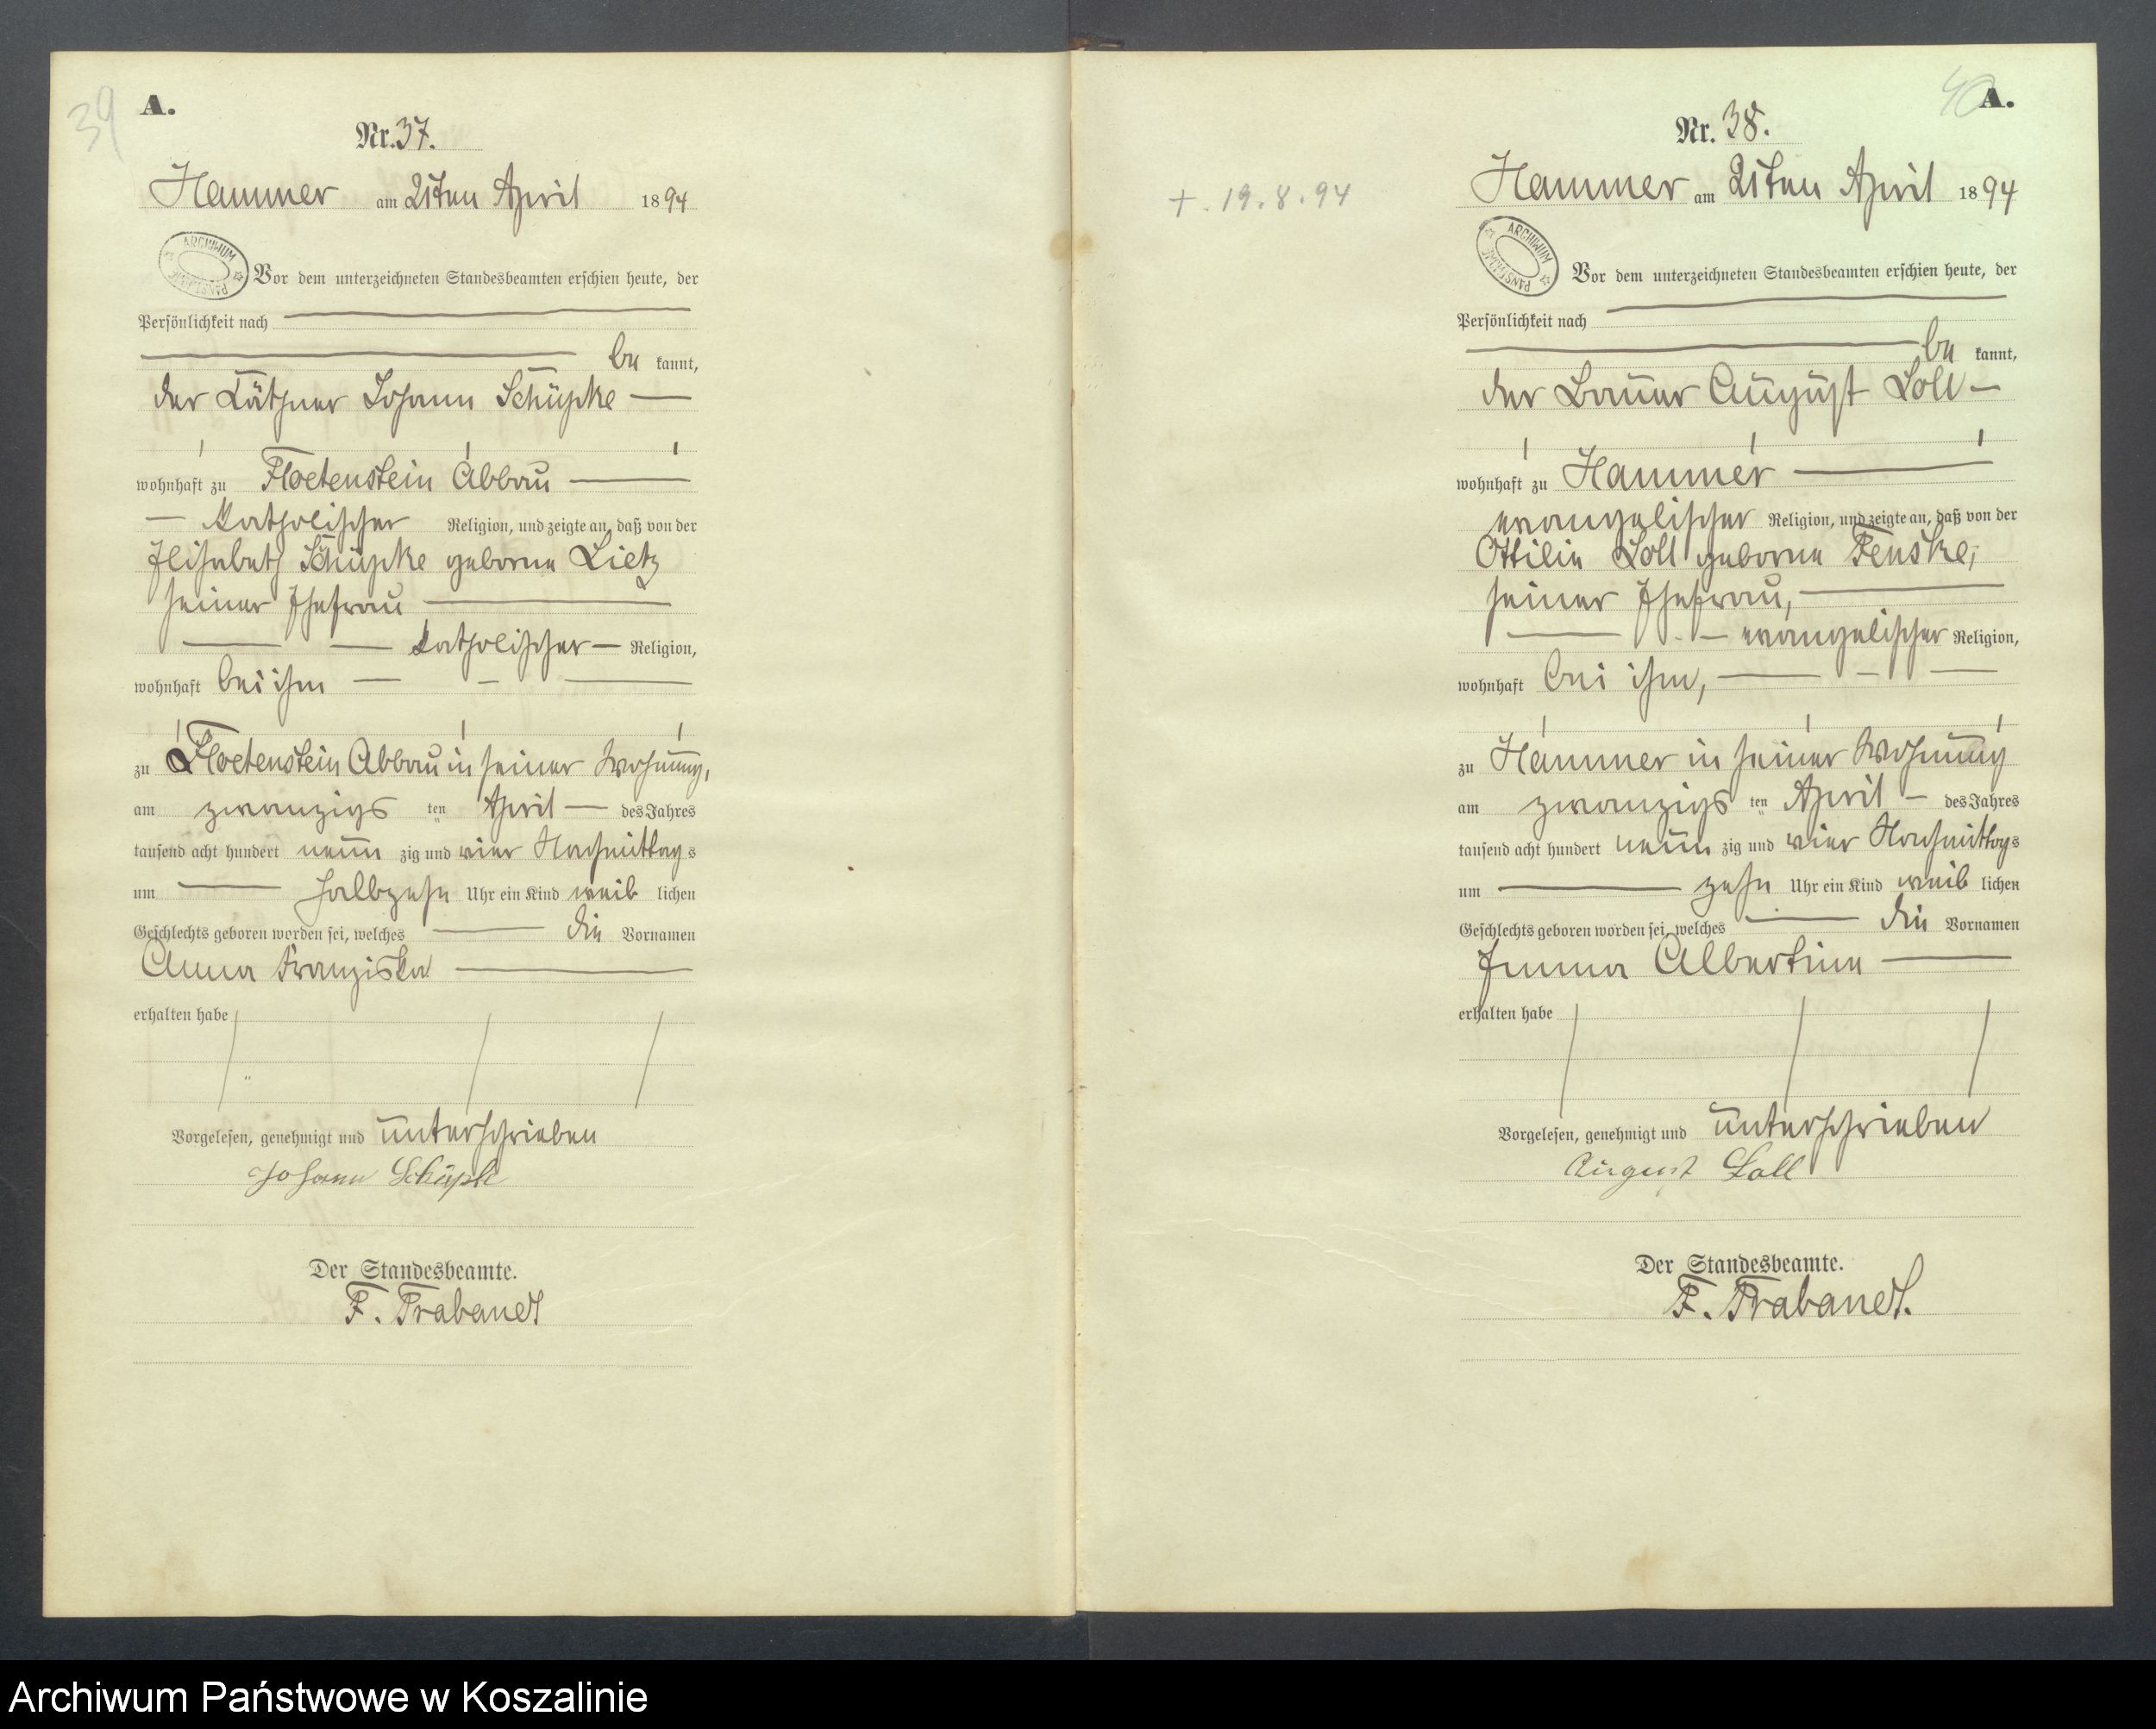 39
A.
Nr. 37.
Hammer am 21ten April 1894
ARCHIWUM PAŃSTWOWE
Vor dem unterzeichneten Standesbeamten erschien heute, der
Persönlichkeit nach
be kannt,
der Käthner Johann Schüpke
wohnhaft zu Floetenstein Abbau
katholischer Religion, und zeigte an, daß von der
Elisabeth Schüpke geborne Lietz
seiner Ehefrau
katholischer Religion,
wohnhaft bei ihm
zu Floetenstein Abbau in seiner Wohnung,
am zwanzigs ten April des Jahres
tausend acht hundert neun zig und vier Nachmittags
um halbzehn Uhr ein Kind weib lichen
Geschlechts geboren worden sei, welches die Vornamen
Anna Franziska
erhalten habe
Vorgelesen, genehmigt und unterschrieben
Johann Schüpke
Der Standesbeamte.
F. Trabandt
40
A.
Nr. 38.
+. 19.8.94
Hammer am 21ten April 1894
ARCHIWUM PAŃSTWOWE
Vor dem unterzeichneten Standesbeamten erschien heute, der
Persönlichkeit nach
be kannt,
der Bauer August Loll
wohnhaft zu Hammer
evangelischer Religion, und zeigte an, daß von der
Ottilie Loll geborne Fenske,
seiner Ehefrau,
evangelischer Religion,
wohnhaft bei ihm,
zu Hammer in seiner Wohnung
am zwanzigs ten April des Jahres
tausend acht hundert neun zig und vier Nachmittags
um zehn Uhr ein Kind weib lichen
Geschlechts geboren worden sei, welches die Vornamen
Emma Albertine
erhalten habe
Vorgelesen, genehmigt und unterschrieben
August Loll
Der Standesbeamte.
F. Trabandt.
Archiwum Państwowe w Koszalinie